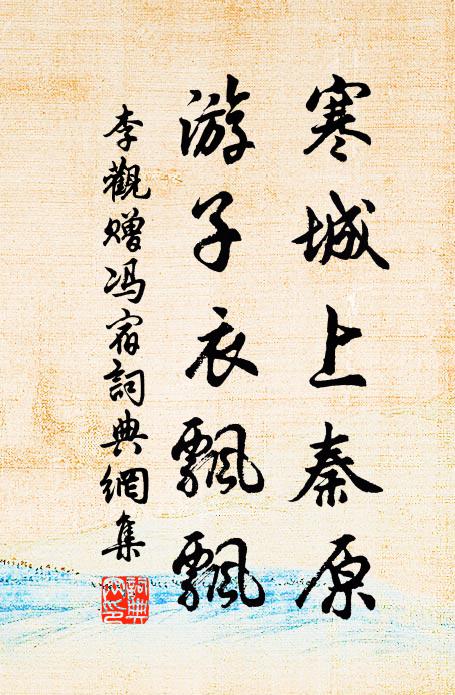 寒城上秦原
游子衣飄飄
李觀贈馮宿詞典網集